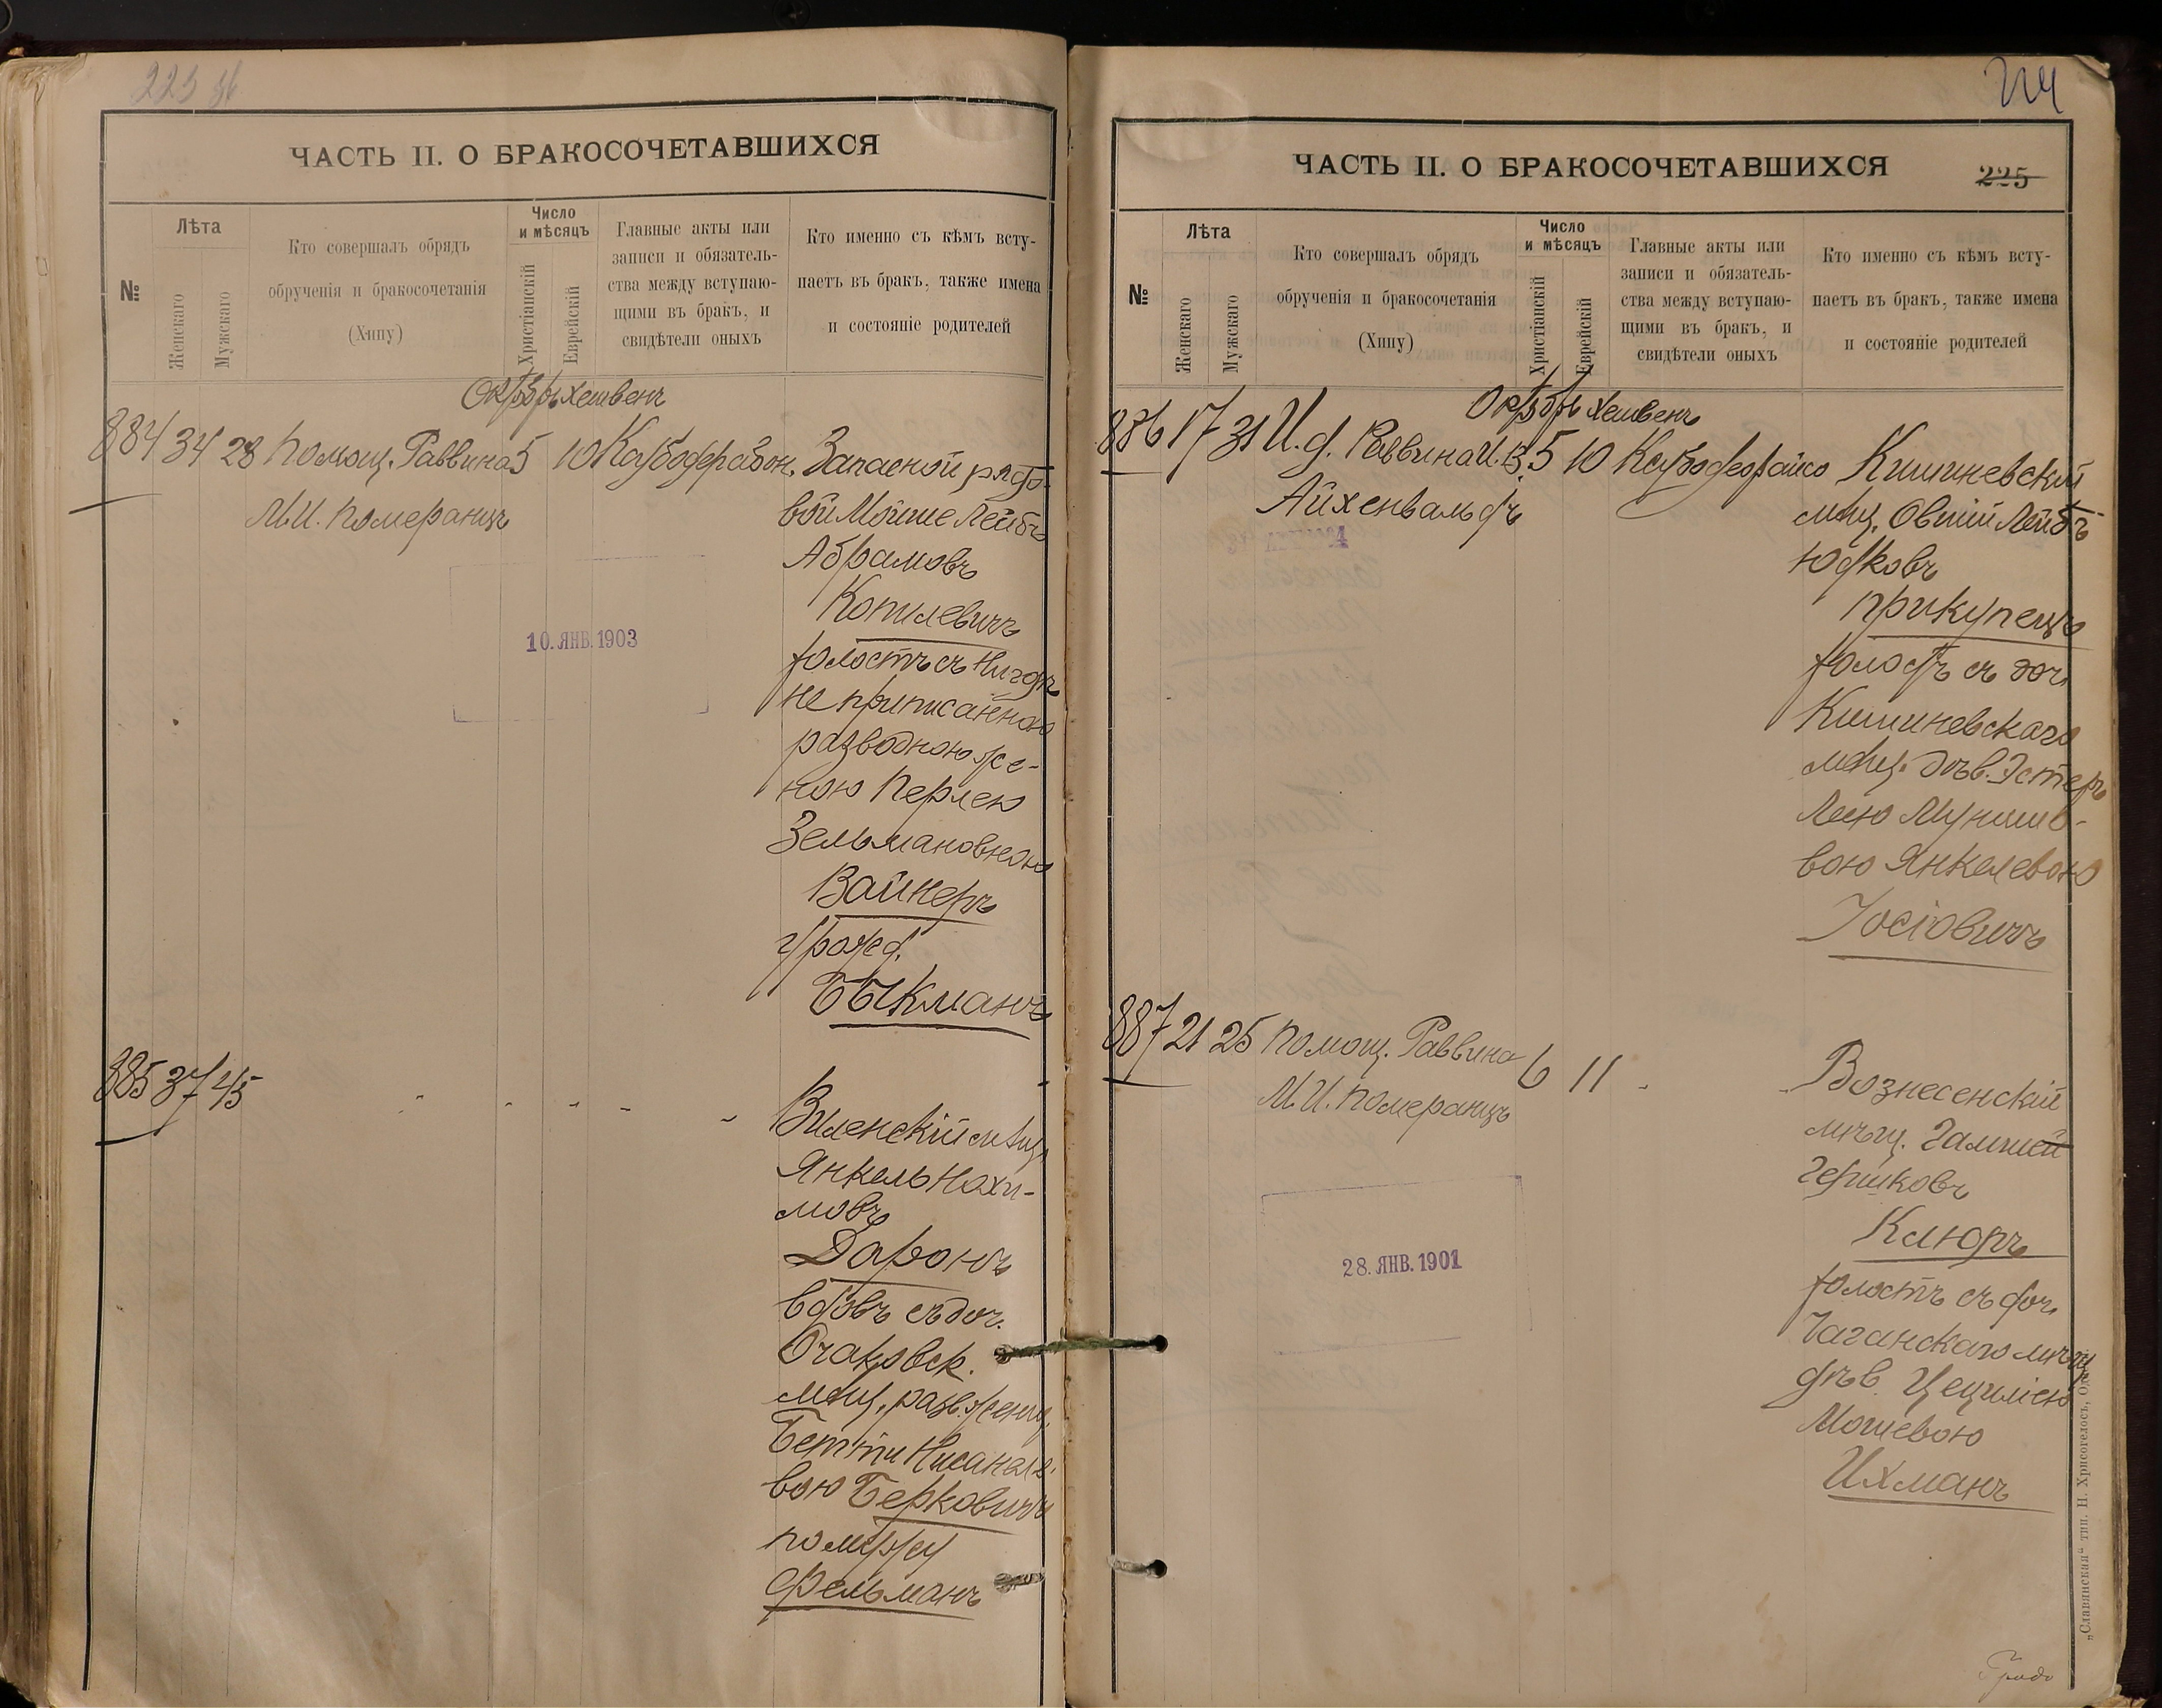 ЧАСТЬ II. О БРАКОСОЧЕТАВШИХСЯ
№
Лѣта
Женскаго
Мужскаго
Кто совершалъ обрядъ
обрученія и бракосочетанія
(Хипу)
Число
и мѣсяцъ
Христіанскій
Еврейскій
Главные акты или
записи и обязатель-
ства между вступаю-
щими въ бракъ, и
свидѣтели оныхъ
Кто именно съ кѣмъ всту-
паетъ въ бракъ, также имена
и состояніе родителей
Октябрь Хешвенъ
884 34 28 Помощ. Раввина 5 10 Запасной рядо-
М.И. Померанцъ
вой Мойше Лейбъ
Абрамовъ
Копилевичъ
холостъ съ нигдѣ
не приписанною
разводною же-
ною Перлею
Зельмановною
Вайнеръ
урожд.
Быкманъ
10. ЯНВ. 1903
885 37 45 Виленскій мѣщ.
Янкель Нохи-
мовъ
Даронъ
вдовъ съ доч.
Очаковск.
мѣщ. разв. женщ.
Бетти
вою Берковичъ
по мужу
Фельманъ
224
ЧАСТЬ II. О БРАКОСОЧЕТАВШИХСЯ
225
№
Лѣта
Женскаго
Мужскаго
Кто совершалъ обрядъ
обрученія и бракосочетанія
(Хипу)
Число
и мѣсяцъ
Христіанскій
Еврейскій
Главные акты или
записи и обязатель-
ства между вступаю-
щими въ бракъ, и
свидѣтели оныхъ
Кто именно съ кѣмъ всту-
паетъ въ бракъ, также имена
и состояніе родителей
Октябрь Хешвенъ
886 17 31 И. д. Раввина И. В. 5 10 Кишиневскій
Айхенвальдъ
мѣщ. Овшій Лейбъ
Юдковъ
Прикупецъ
холостъ съ доч.
Кишиневскаго
мѣщ. дѣв. Эстеръ
Леею
вою Янкелевою
Іосіовичъ
887 21 25 Помощ. Раввина 6 11 Вознесенскій
М.И. Померанцъ
мѣщ.
Гершковъ
Клюръ
холостъ съ доч.
мѣщ
дѣв. Цециліею
Мошевою
Ихманъ
28. ЯНВ. 1901
„Славянская“ тип. Н. Хрисогелосъ,